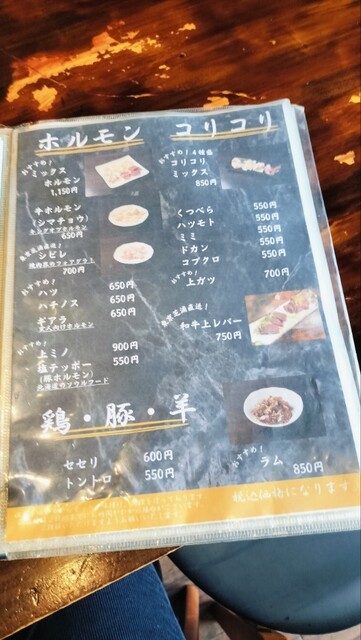 ホルモン
おすすめ!
ミックス
ホルモン
1,150円
牛ホルモン
(シマチョウ)
キングオブホルモン
650円
東京芝浦直送!
シビレ
焼肉界のフォアグラ!
700円
ハツ 650円
ハチノス 650円
ギアラ 650円
玄人向けホルモン
おすすめ!
上ミノ 900円
塩テッポー 550円
(豚ホルモン)
北海道のソウルフード
コリコリ
おすすめ!4種盛
コリコリ
ミックス
850円
くつべら 550円
ハツモト 550円
ミミ 550円
ドカン 550円
コブクロ 550円
おすすめ!
上ガツ 700円
東京芝浦直送!
和牛上レバー
750円
鶏・豚・羊
セセリ 600円
トントロ 550円
おすすめ!
ラム 850円
税込価格になります